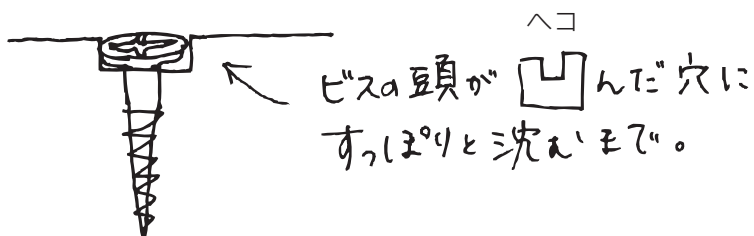 ヘコ
ビスの頭が凹んだ穴に
すっぽりと沈むまで。